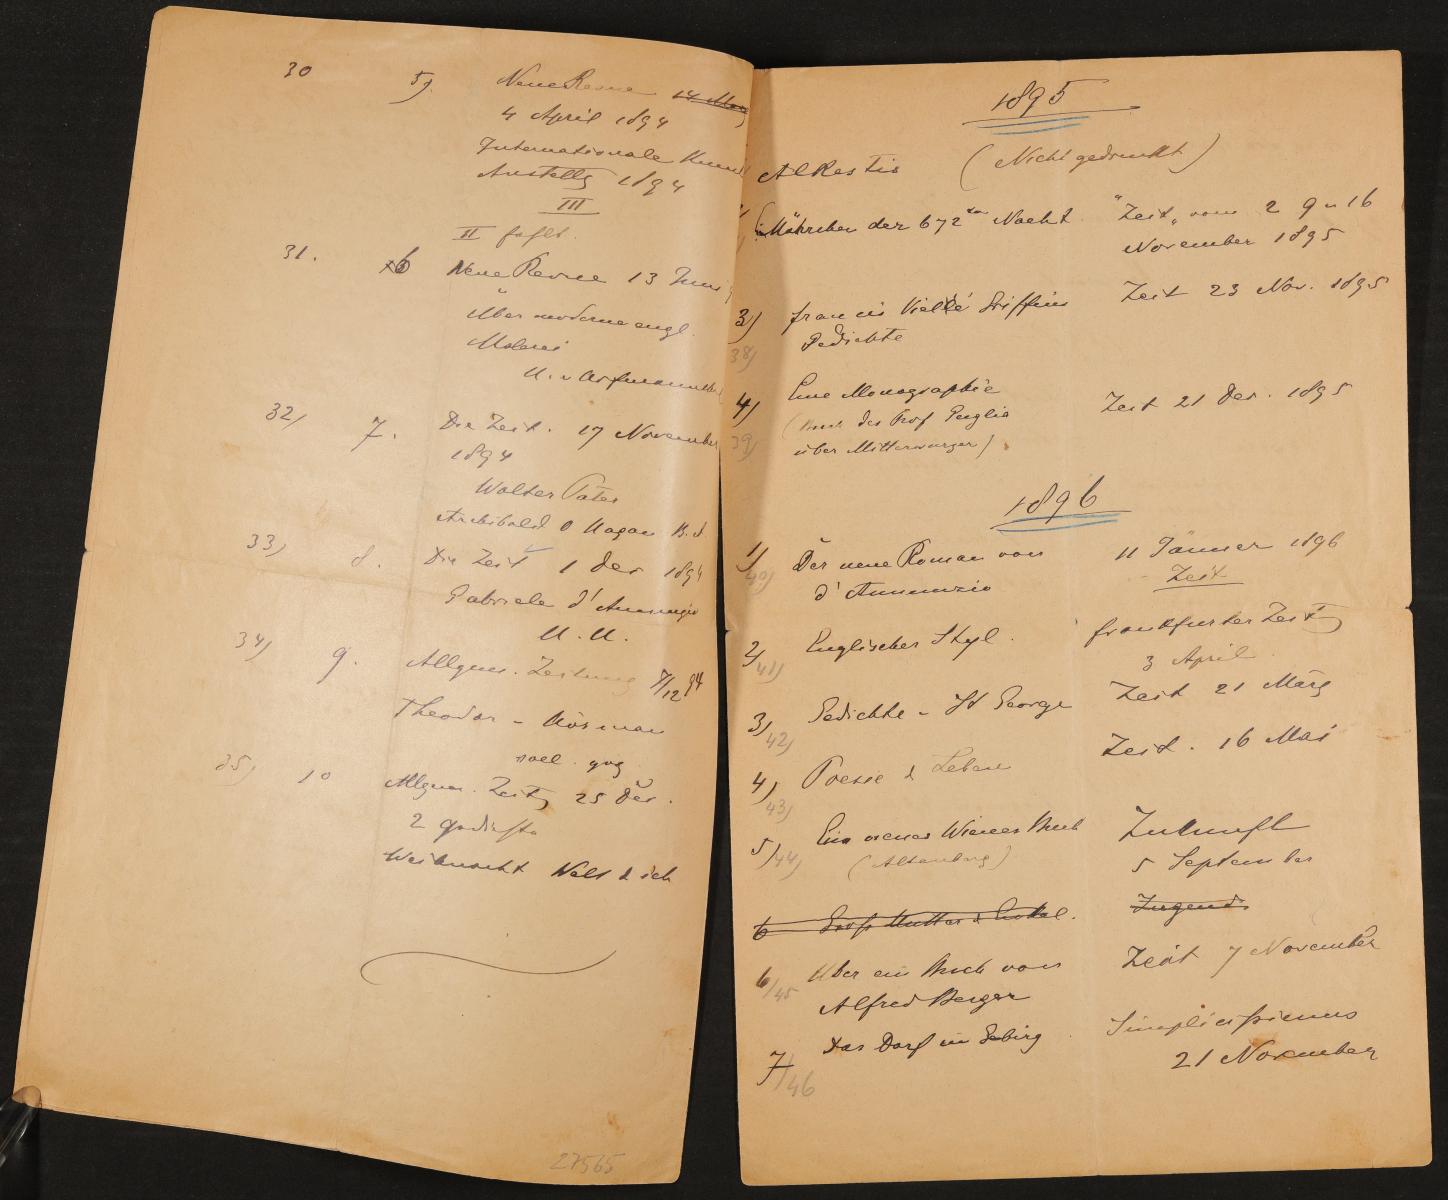 30 5). Neue Revue 14 März
4 April 1894
Internationale Kunst
Austellg 1894
III
II fehlt.
31. 6 Neue Revue 13 Juni
Über moderne engl.
Malerei
32) 7. Die Zeit. 17 November
1894
Walter Pater
Archibald O Hagan B. A
33) 8. Die Zeit 1 Dec 1894
Gabriele d'Annunzio
34) 9. Allgem. Zeitung 7/12 94
Theodor -
35) 10 Allgem. Zeitg 25 Dec.
2 Gedichte
Weihnacht Welt & ich
27565
1895
(Nicht gedruckt)
Alkestis
Mährchen der 672ten Nacht "Zeit" vom 2 9 u 16
November 1895
3) Francis Vielé Griffins Zeit 23 Nov. 1895
38) Gedichte
4) Eine Monographie Zeit 21 Dec. 1895
39) (Buch des Prof Guglia
über Mitterwurzer)
1896
1) Der neue Roman von 11 Jänner 1896
40) d'Annunzio Zeit
2) Englischer Styl. Frankfurter Zeitg
41) 3 April
3) Gedichte - St George Zeit 21 März
42)
4) Poesie & Leben Zeit. 16 Mai
43)
5) Ein neues Wiener Buch Zukunft
44) (Altenberg) 5 September
6 Gross Mutter & Enkel. Jugend
6) Über ein Buch von Zeit 7 November
45 Alfred Berger
7) Das Dorf im Gebirg Simplicissimus
46 21 November